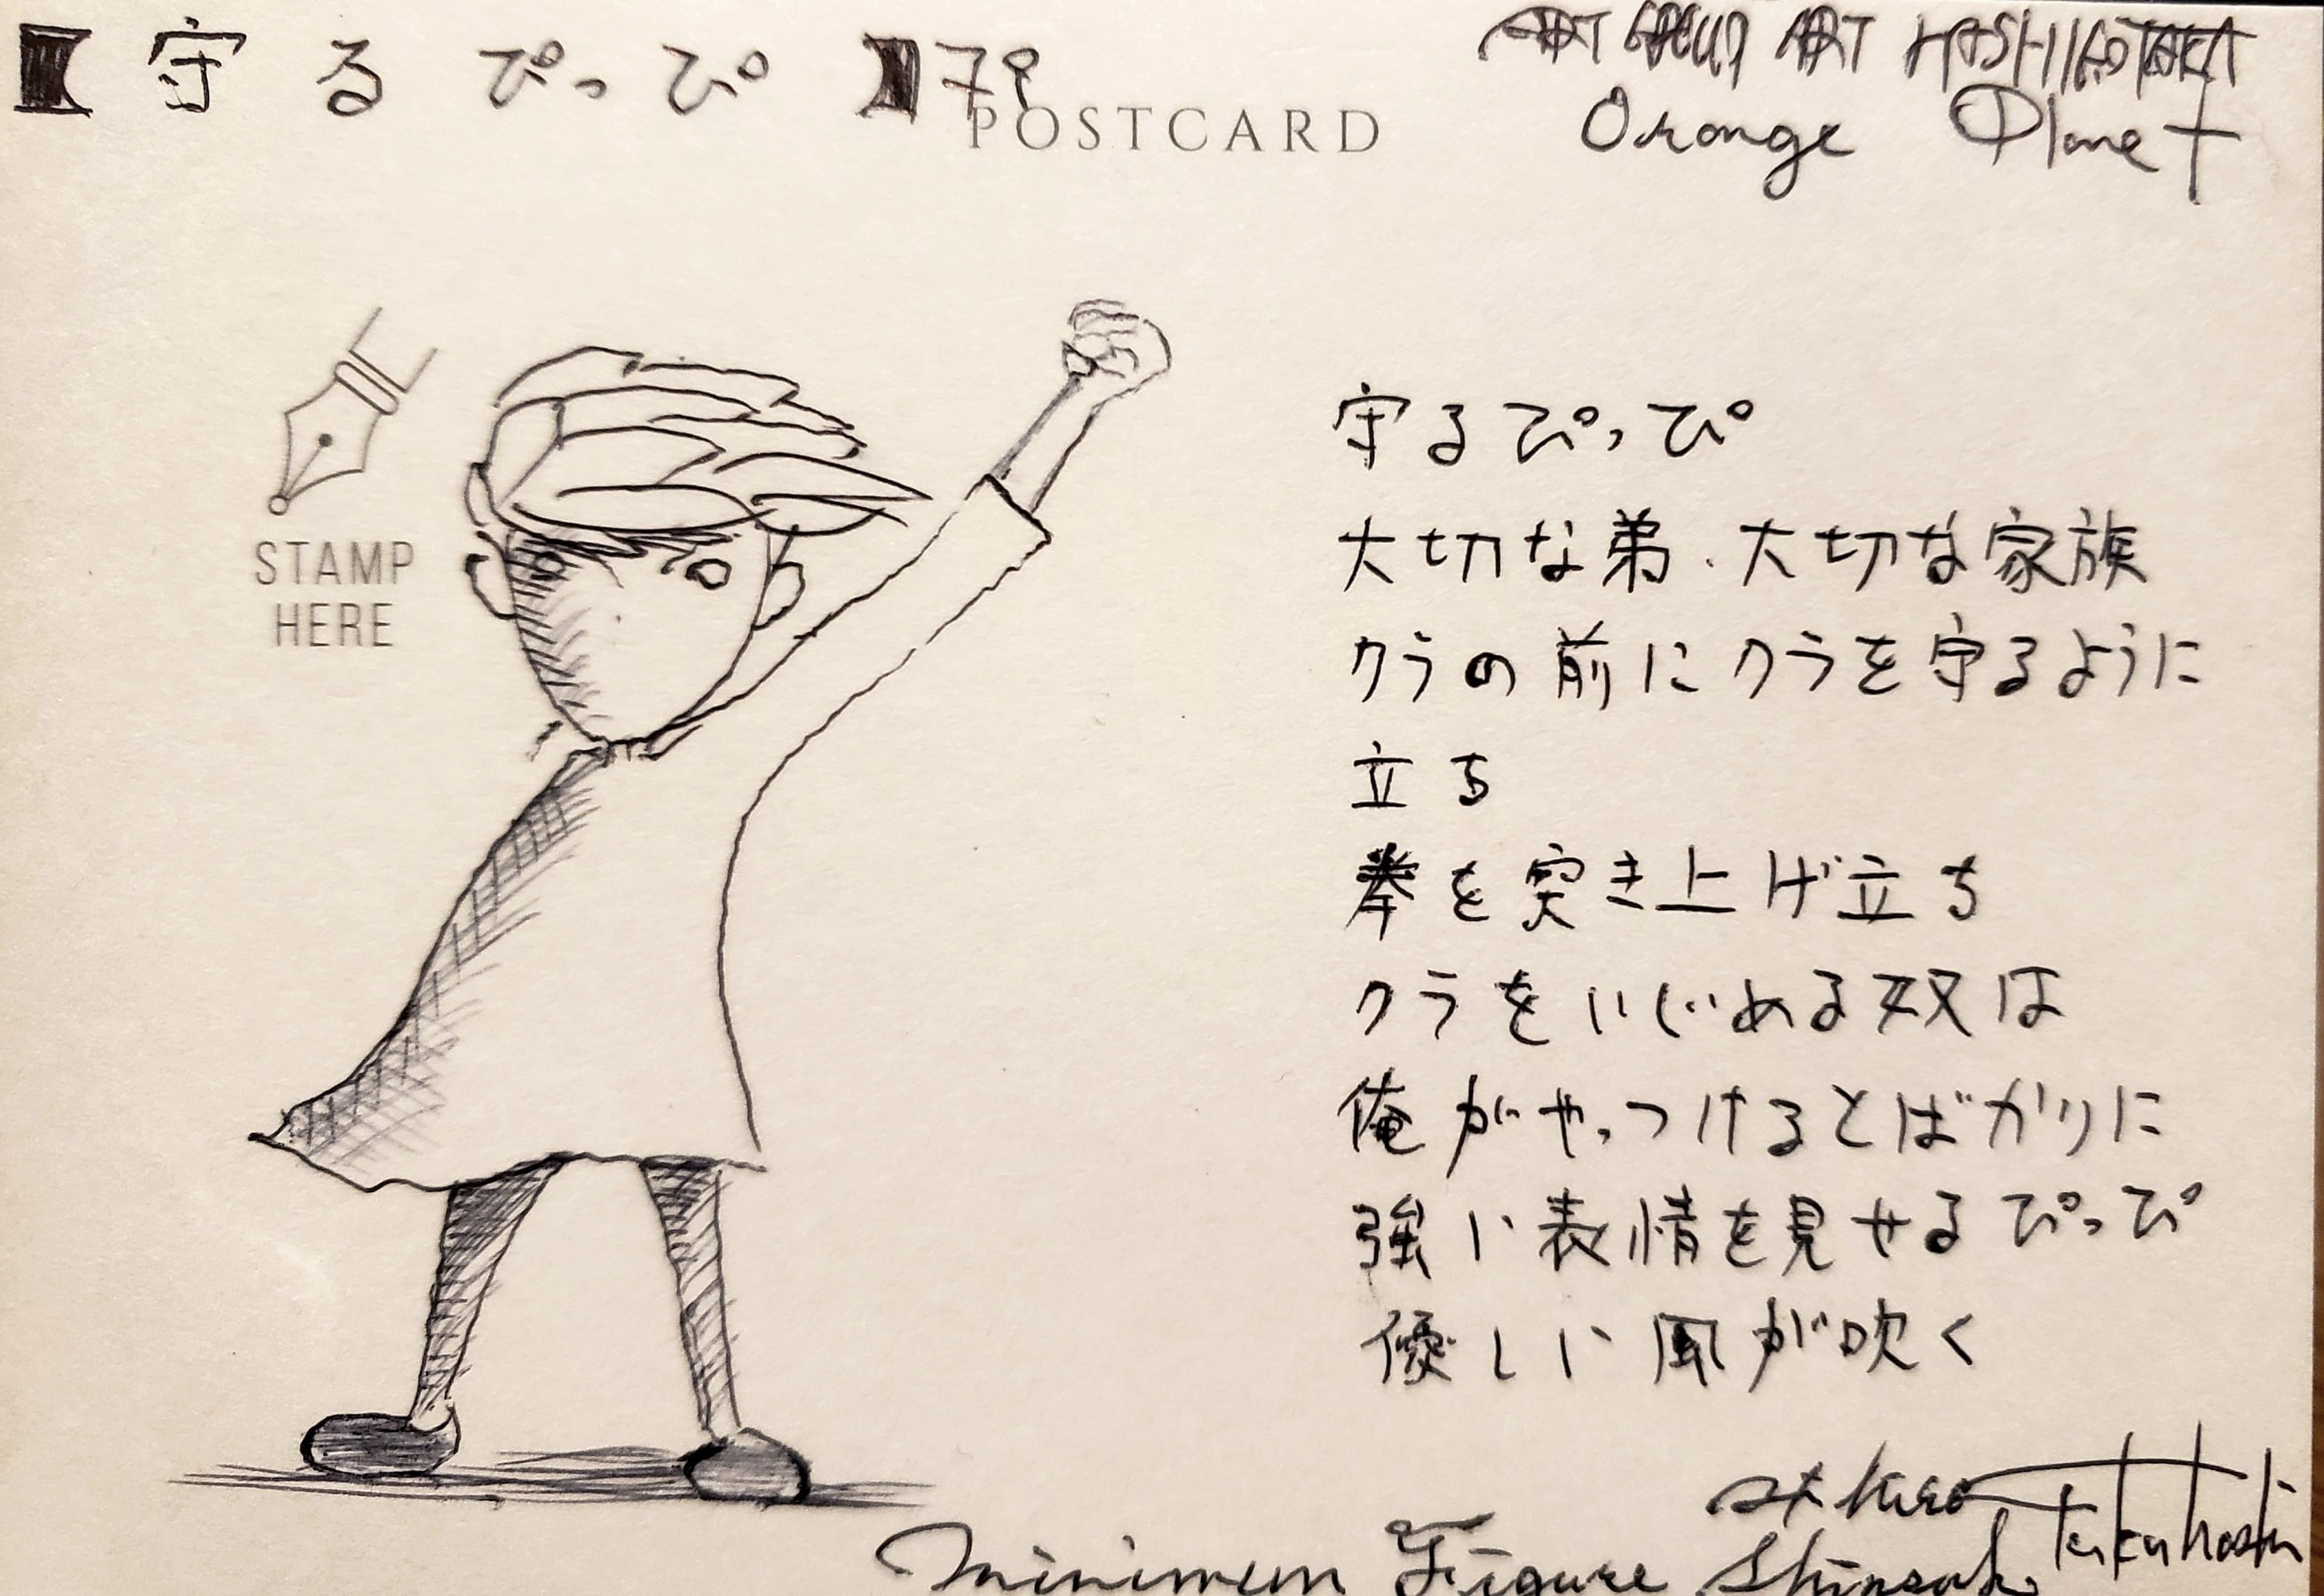 【守るぴっぴ】
POSTCARD
Orange Planet
STAMP
HERE
守るぴっぴ
大切な弟、大切な家族
クラの前にクラを守るように
立ち
拳を突き上げ立ち
クラをいじめる奴は
俺がやっつけるとばかりに
強い表情を見せるぴっぴ
優しい風が吹く
Minimum Figure